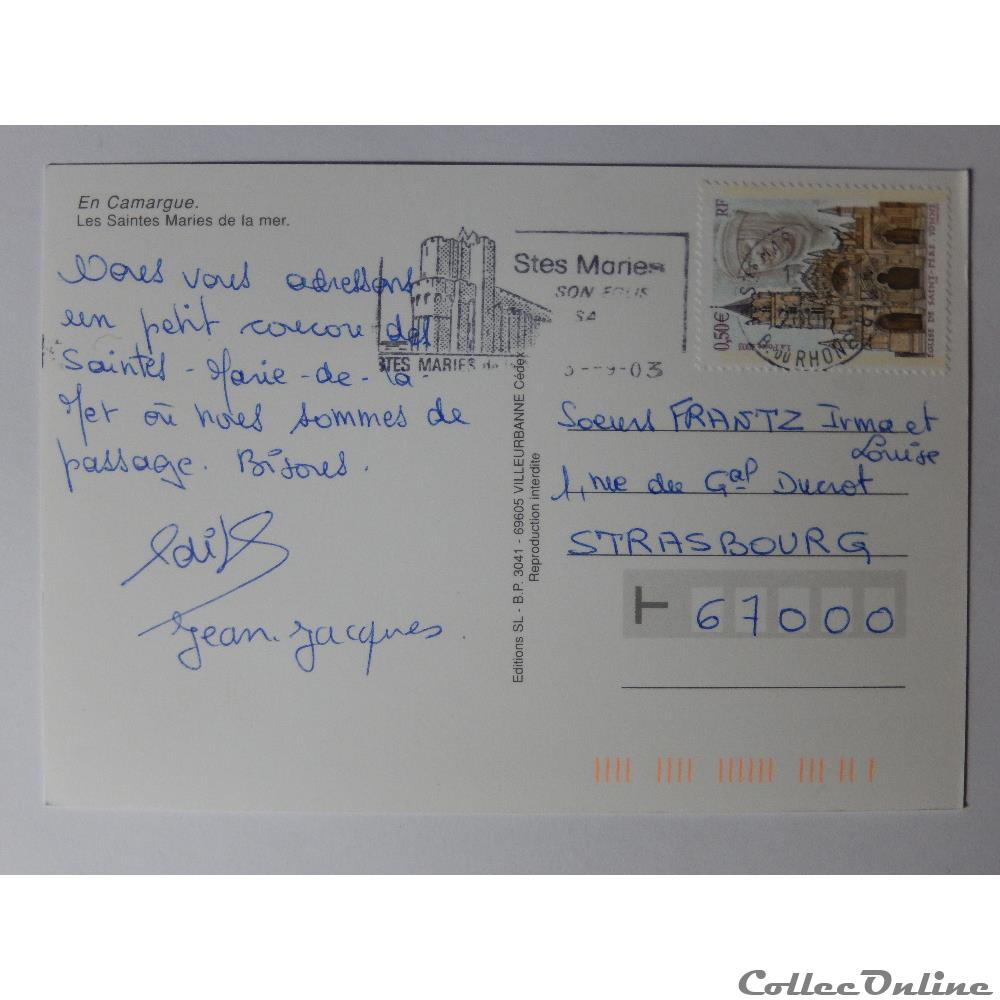 En Camargue.
Les Saintes Maries de la mer.
Nous vous adressons
un petit coucou des
Saintes-Marie-de-la-
Mer où nous sommes de
passage. Bisous.
Jean-Jacques.
Stes Maries
SON EGLIS
SA
STES MARIES
-9-03
RF
0,50€
La Poste 2003
B. DU RHONE
Editions SL - B.P. 3041 - 69605 VILLEURBANNE Cédex
Reproduction interdite
Soeurs FRANTZ Irma et
Louise
1, rue du Gal Ducrot
STRASBOURG
67000
CollecOnline